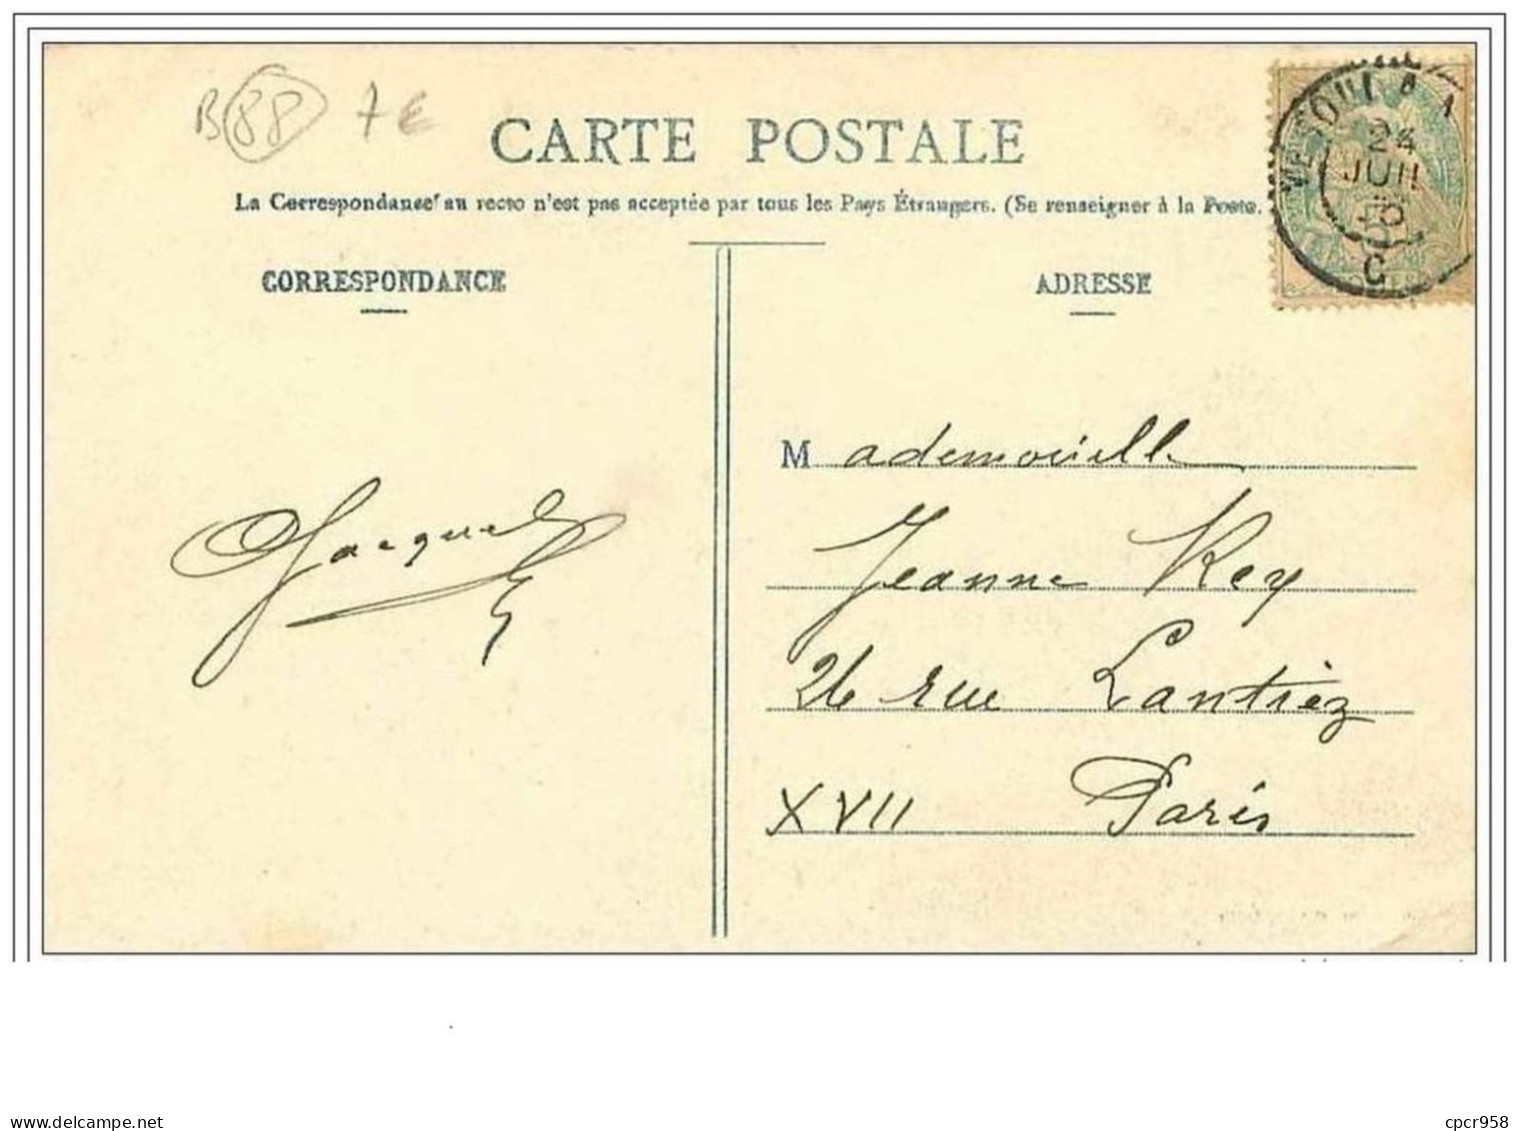 B 88 7 €
CARTE POSTALE
La Correspondance au recto n'est pas acceptée par tous les Pays Étrangers. (Se renseigner à la Poste.
CORRESPONDANCE
ADRESSE
VESOUL
24
JUIL
C
Mademoiselle
Jeanne Rey
26 rue Lantiez
XVII Paris
Jacquel
cpcr958